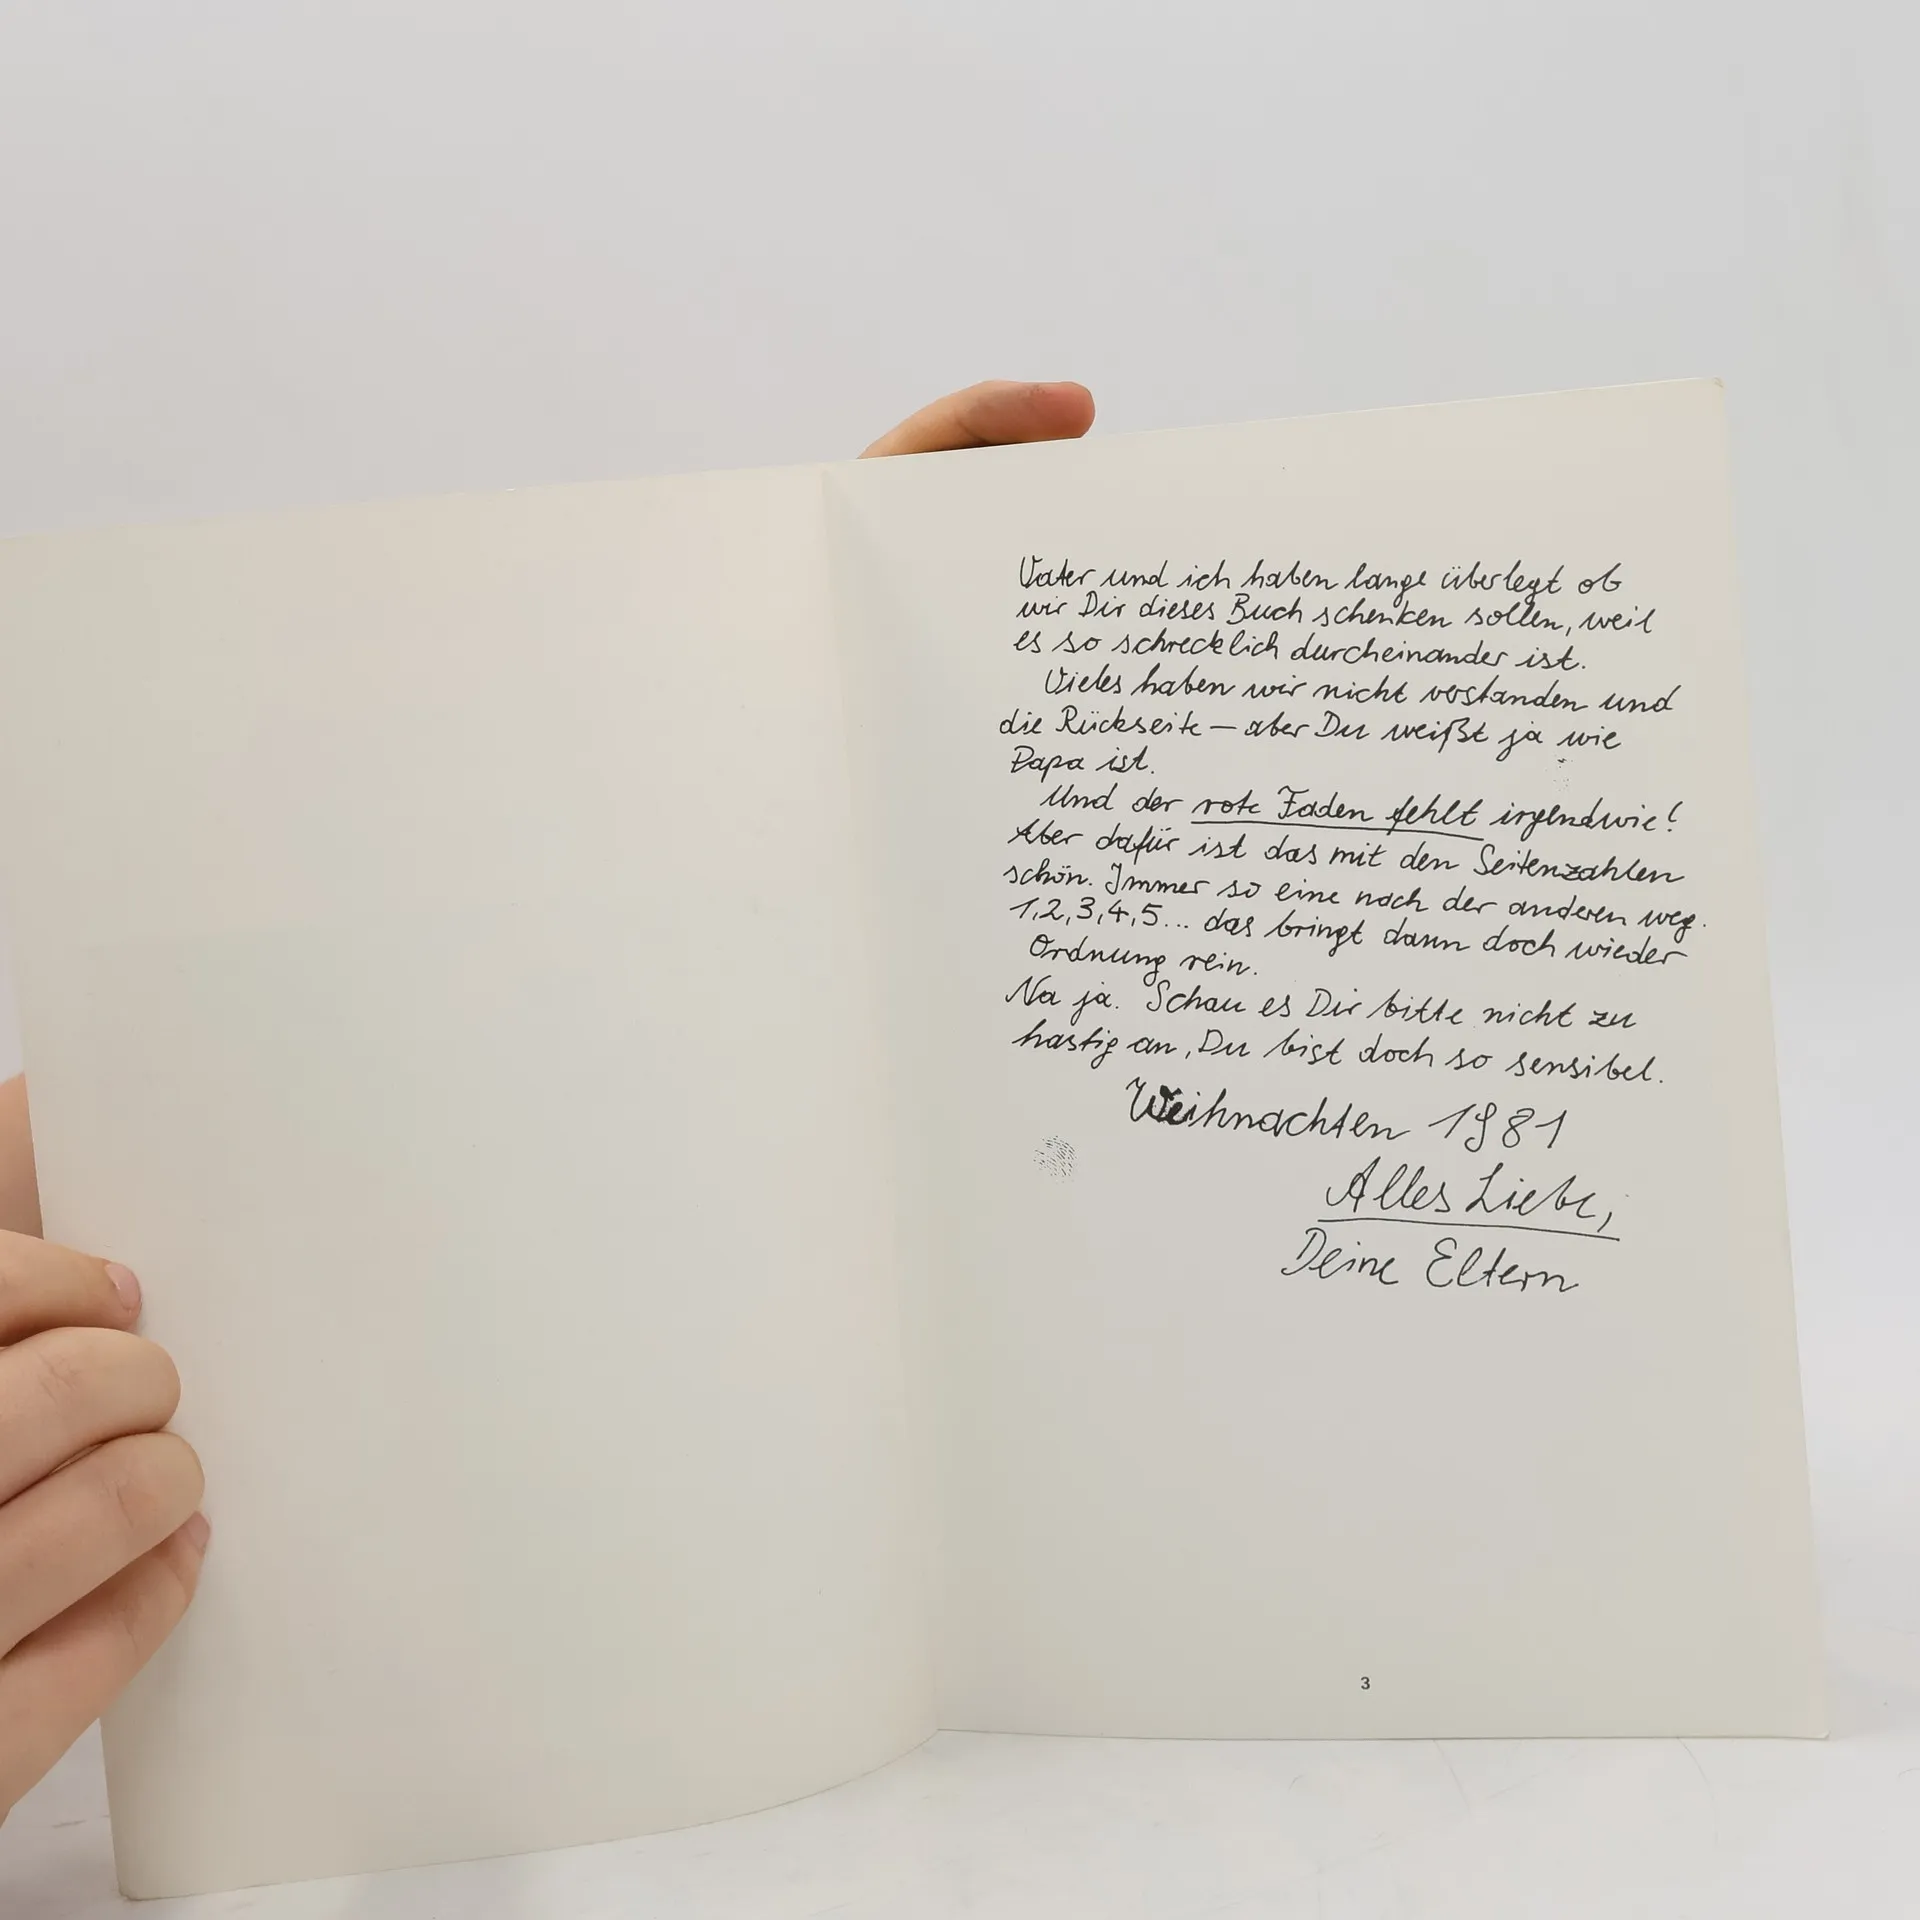 Vater und ich haben lange überlegt ob
wir Dir dieses Buch schenken sollen, weil
es so schrecklich durcheinander ist.
Vieles haben wir nicht verstanden und
die Rückseite – aber Du weißt ja wie
Papa ist.
Und der rote Faden fehlt irgendwie!
Aber dafür ist das mit den Seitenzahlen
schön. Immer so eine nach der anderen weg.
1,2,3,4,5... das bringt dann doch wieder
Ordnung rein.
Na ja. Schau es Dir bitte nicht zu
hastig an, Du bist doch so sensibel.
Weihnachten 1981
Alles Liebe,
Deine Eltern
3